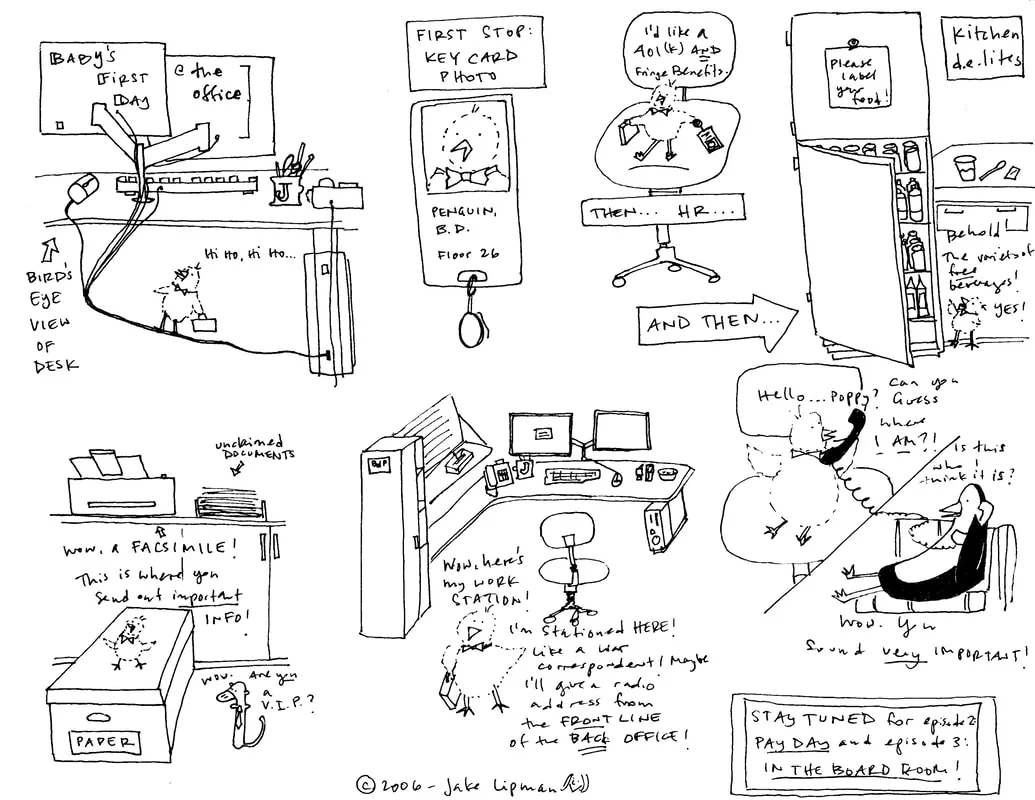 BABY'S
FIRST
DAY
@ the
office
BIRD'S
EYE
VIEW
OF
DESK
J
Hi Ho, Hi Ho...
FIRST STOP:
KEY CARD
PHOTO
PENGUIN,
B.D.
Floor 26
I'd like a
401(k) AND
Fringe Benefits.
THEN... HR...
AND THEN...
Please
label
your
food!
Kitchen
d.e.lites
Behold!
The variety of
free
beverages!
YES!
unclaimed
DOCUMENTS
Wow, a FACSIMILE!
This is where you
send out important
INFO!
PAPER
Wow. Are you
a
V.I.P.?
BDP
J
Wow, here's
my WORK
STATION!
I'm stationed HERE!
Like a war
correspondent! Maybe
I'll give a radio
address from
the FRONT LINE
of the BACK OFFICE!
Hello... Poppy? Can you
Guess
where
I AM?!
Is this
who I
think it is?
Wow. You
Sound very IMPORTANT!
STAY TUNED for episode 2:
PAY DAY and episode 3:
IN THE BOARD ROOM!
© 2006 - Jake Lipman